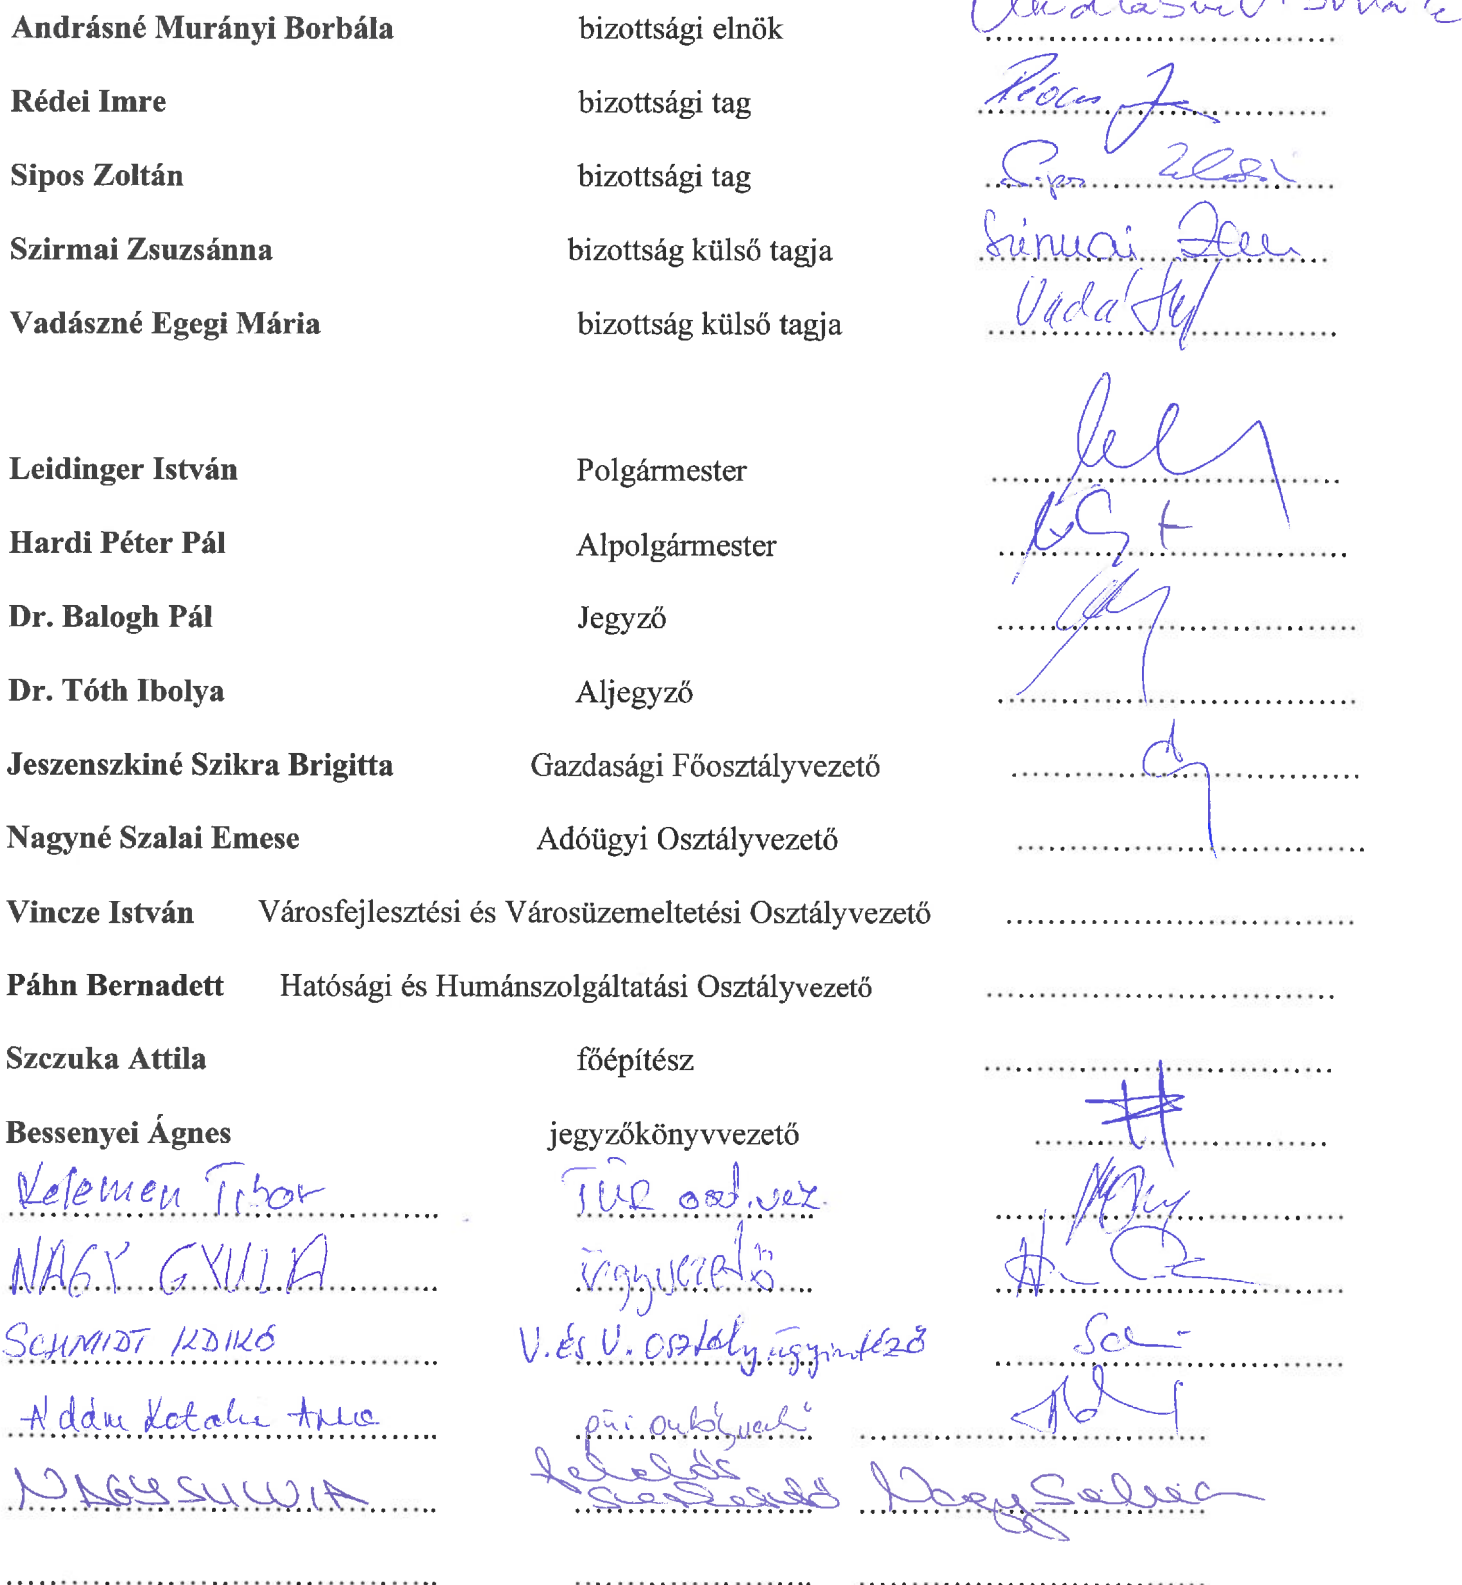 Andrásné Murányi Borbála bizottsági elnök
Rédei Imre bizottsági tag
Sipos Zoltán bizottsági tag Sipos
Szirmai Zsuzsánna bizottság külső tagja Szirmai
Vadászné Egegi Mária bizottság külső tagja
Leidinger István Polgármester
Hardi Péter Pál Alpolgármester
Dr. Balogh Pál Jegyző
Dr. Tóth Ibolya Aljegyző
Jeszenszkiné Szikra Brigitta Gazdasági Főosztályvezető
Nagyné Szalai Emese Adóügyi Osztályvezető
Vincze István Városfejlesztési és Városüzemeltetési Osztályvezető
Páhn Bernadett Hatósági és Humánszolgáltatási Osztályvezető
Szczuka Attila főépítész
Bessenyei Ágnes jegyzőkönyvvezető
Kelemen Tibor oszt.vez.
NAGY GYULA ügyvezető
SCHMIDT ILDIKÓ V. és V. osztály ügyintéző
Ádám Katalin Anna
NAGY SZILVIA felelős szerkesztő Nagy Szilvia